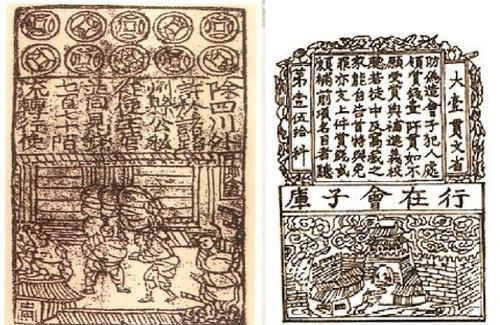 除四川外
許於諸路
州縣公私
從便主管
並同見錢
七百七十陌
流轉行使
大壹貫文省
防偽造會子犯人處
斬賞錢壹阡貫如不
願受賞與補進義校
尉若徒中及窩藏之
家能自告首特與免
罪亦支上件賞錢或
願補前項名目者聽
第壹伍拾料
行在會子庫